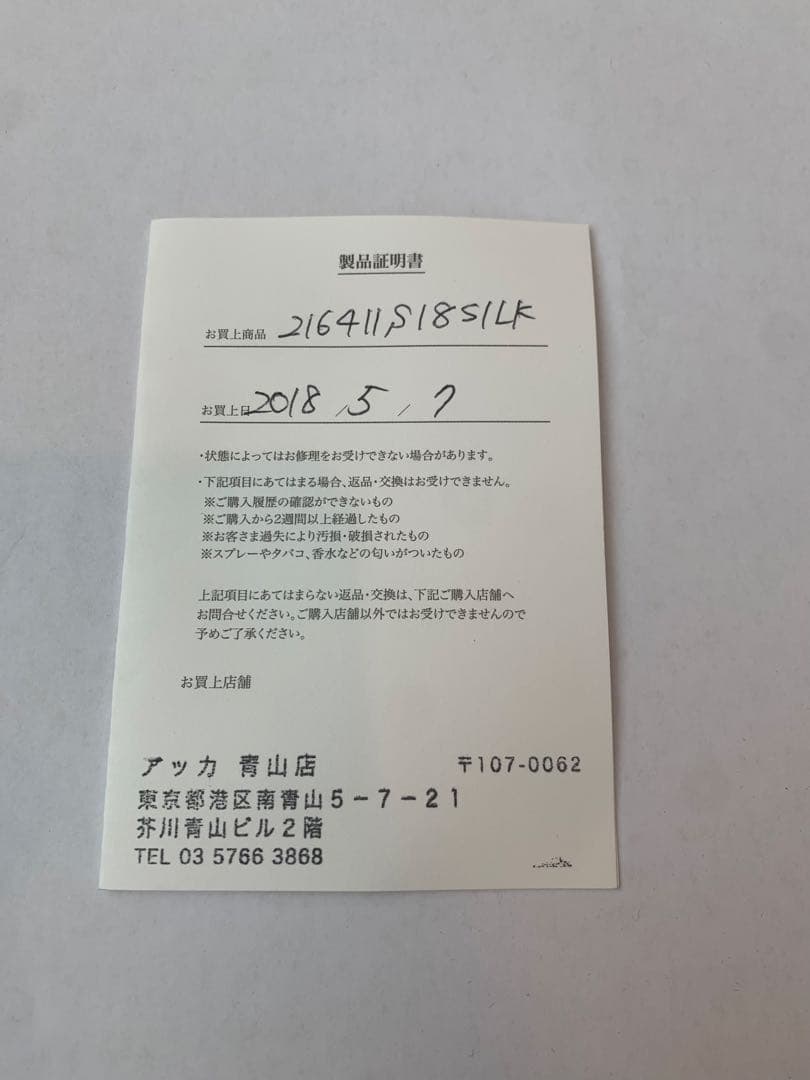 製品証明書
お買上商品 216411S18S1LK
お買上日 2018,5,7
・状態によってはお修理をお受けできない場合があります。
・下記項目にあてはまる場合、返品・交換はお受けできません。
※ご購入履歴の確認ができないもの
※ご購入から2週間以上経過したもの
※お客さま過失により汚損・破損されたもの
※スプレーやタバコ、香水などの匂いがついたもの
上記項目にあてはまらない返品・交換は、下記ご購入店舗へ
お問合せください。ご購入店舗以外ではお受けできませんので
予めご了承ください。
お買上店舗
アッカ 青山店 〒107-0062
東京都港区南青山5-7-21
芥川青山ビル2階
TEL 03 5766 3868